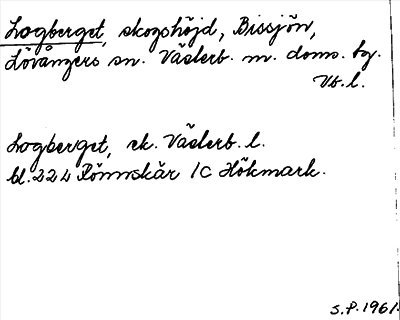 Logberget, skogshöjd, Bissjön,
Lövångers sn. Västerb. m. doms. tg.
Vb. l.
Logberget, ek. Västerb. l.
bl. 224 Rönnskär 1C Hökmark.
S.P. 1961.